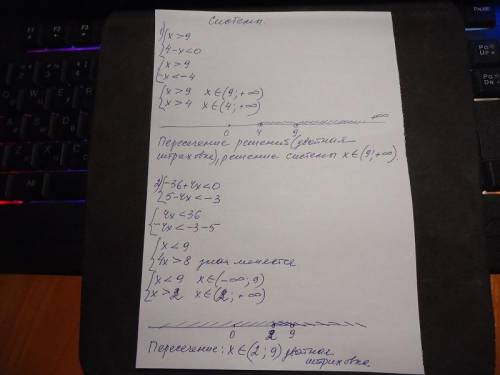 Системы.
1) { x > 9
4-x<0
{ x > 9
-x<-4
{ x > 9 x∈(9;+∞)
x > 4 x∈(4;+∞)
0 4 9 +∞
Пересечение решений (двойная
штриховка), решение системы x∈(9;+∞).
2) { -36+4x<0
5-4x<-3
{ 4x<36
-4x<-3-5
{ x<9
4x>8 знак меняется
{ x<9 x∈(-∞;9)
x>2 x∈(2;+∞)
0 2 9
Пересечение: x∈(2;9) двойная
штриховка.